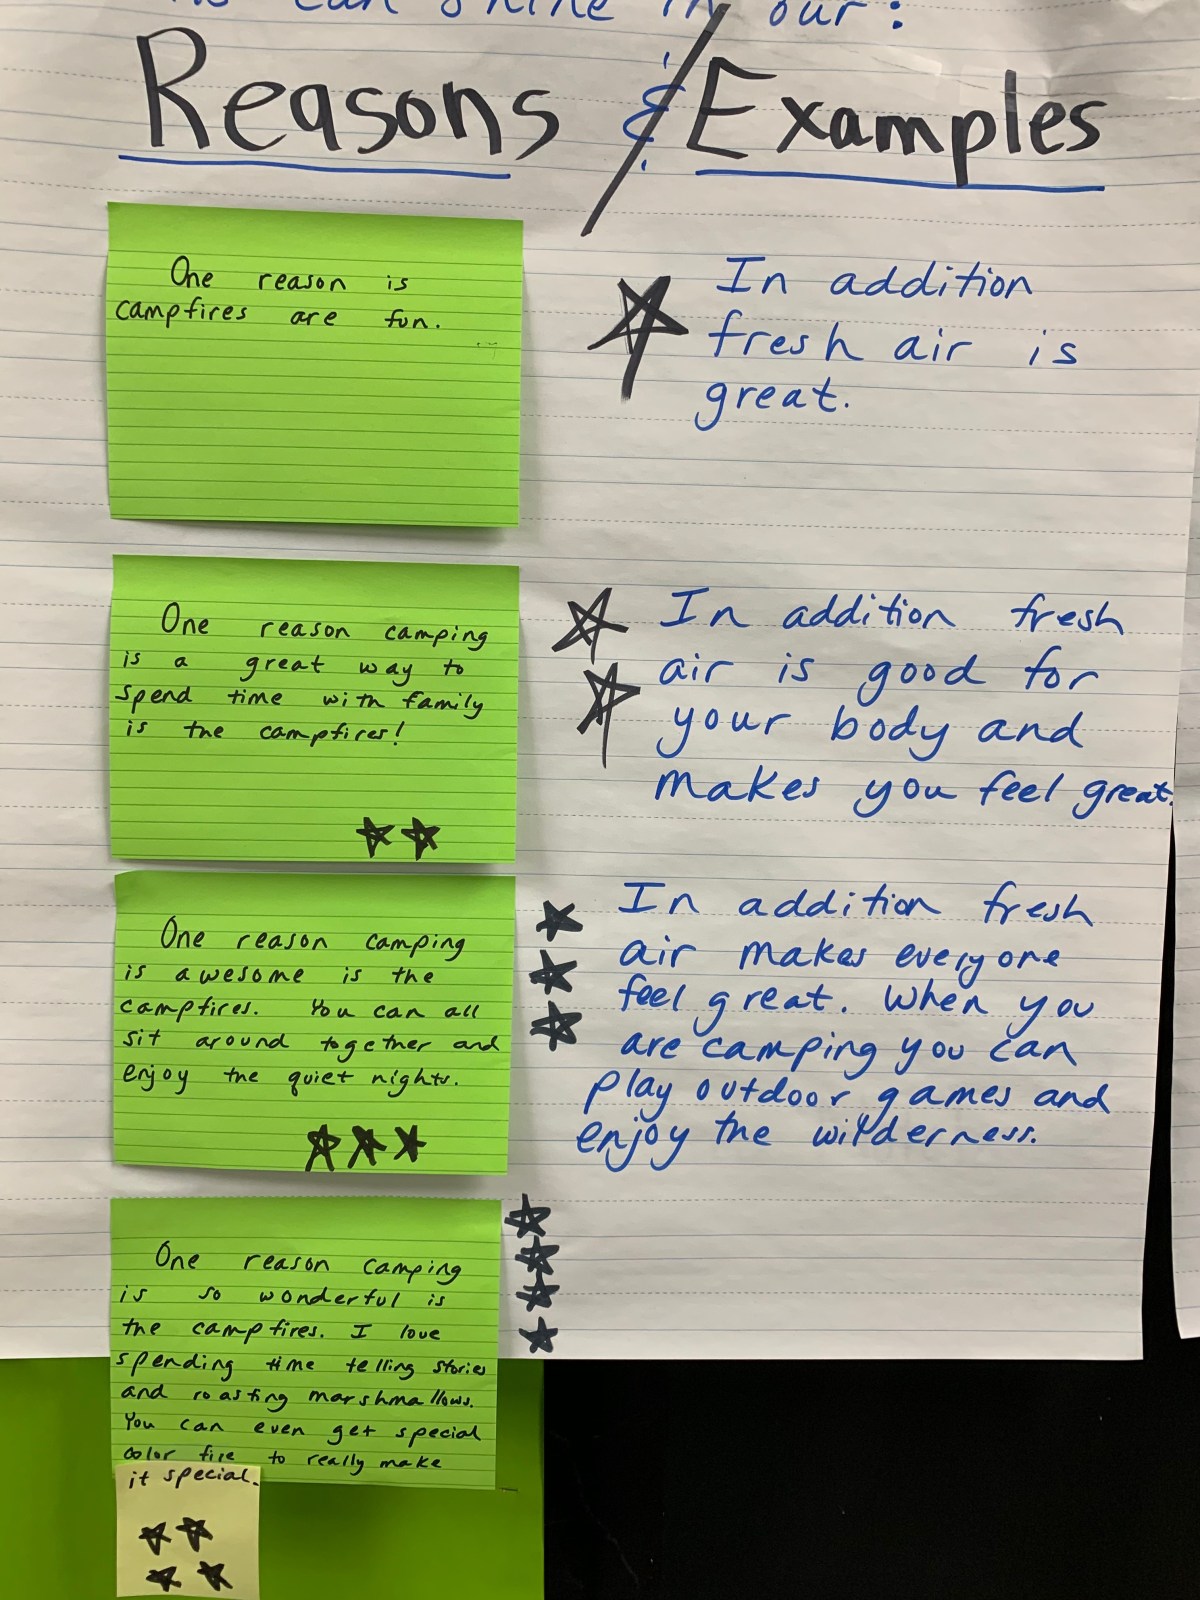 can shine in our:
Reasons & / Examples
One reason is
campfires are fun.
In addition
fresh air is
great.
One reason camping
is a great way to
spend time with family
is the campfires!
In addition fresh
air is good for
your body and
makes you feel great.
One reason camping
is awesome is the
campfires. You can all
sit around together and
enjoy the quiet nights.
In addition fresh
air makes everyone
feel great. When you
are camping you can
play outdoor games and
enjoy the wilderness.
One reason camping
is so wonderful is
the campfires. I love
spending time telling stories
and roasting marshmallows.
You can even get special
color fire to really make
it special.